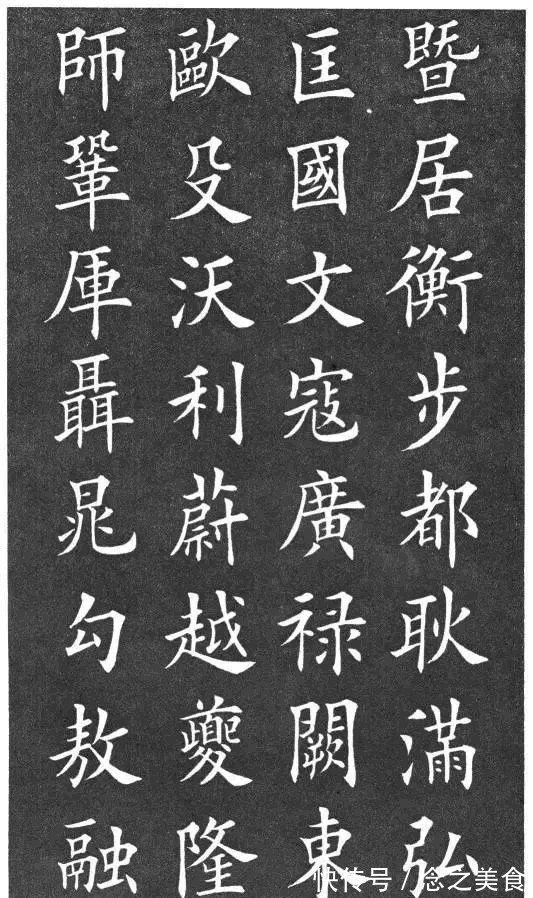 暨居衡步都耿滿弘
匡國文寇廣禄闕東
歐殳沃利蔚越夔隆
師鞏厙聶晁勾敖融
快传号 / 念之美食